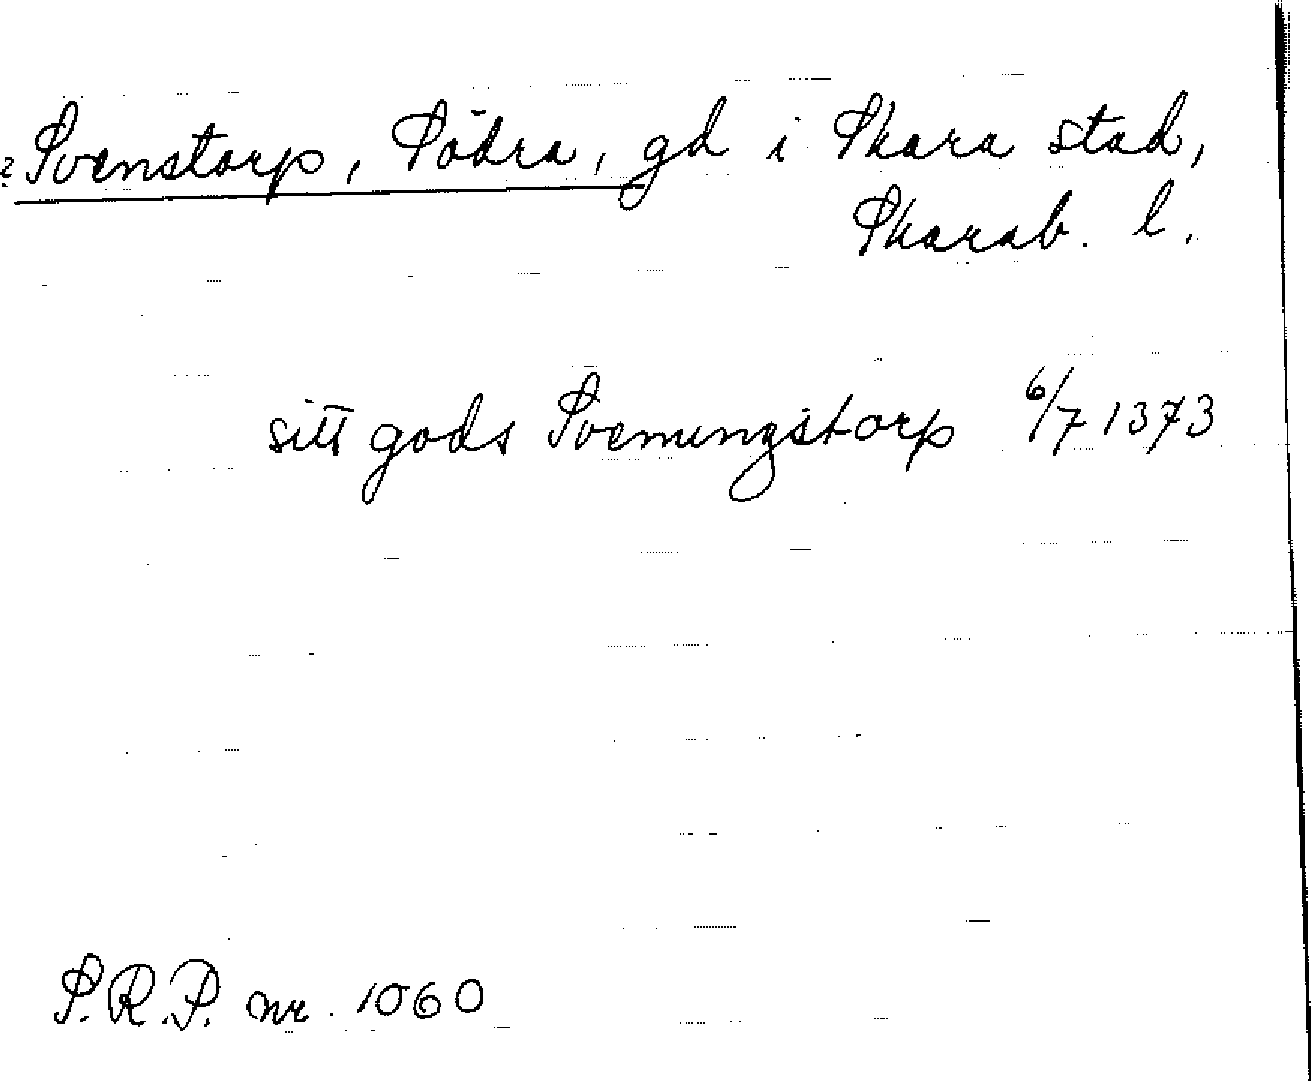 ? Svenstorp, Södra, gd i Skara stad,
Skarab. l.
sitt gods Svemungstorp 6/7 1373
S.R.P. nr. 1060